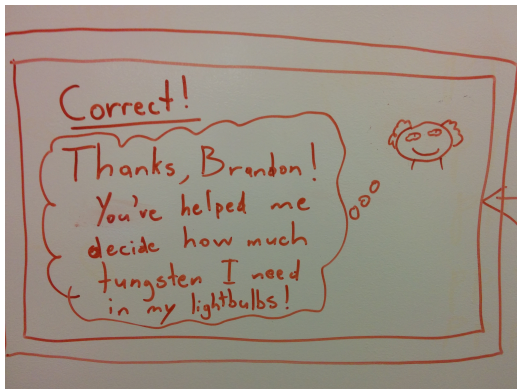 Correct!
Thanks, Brandon!
You've helped me
decide how much
tungsten I need
in my lightbulbs!